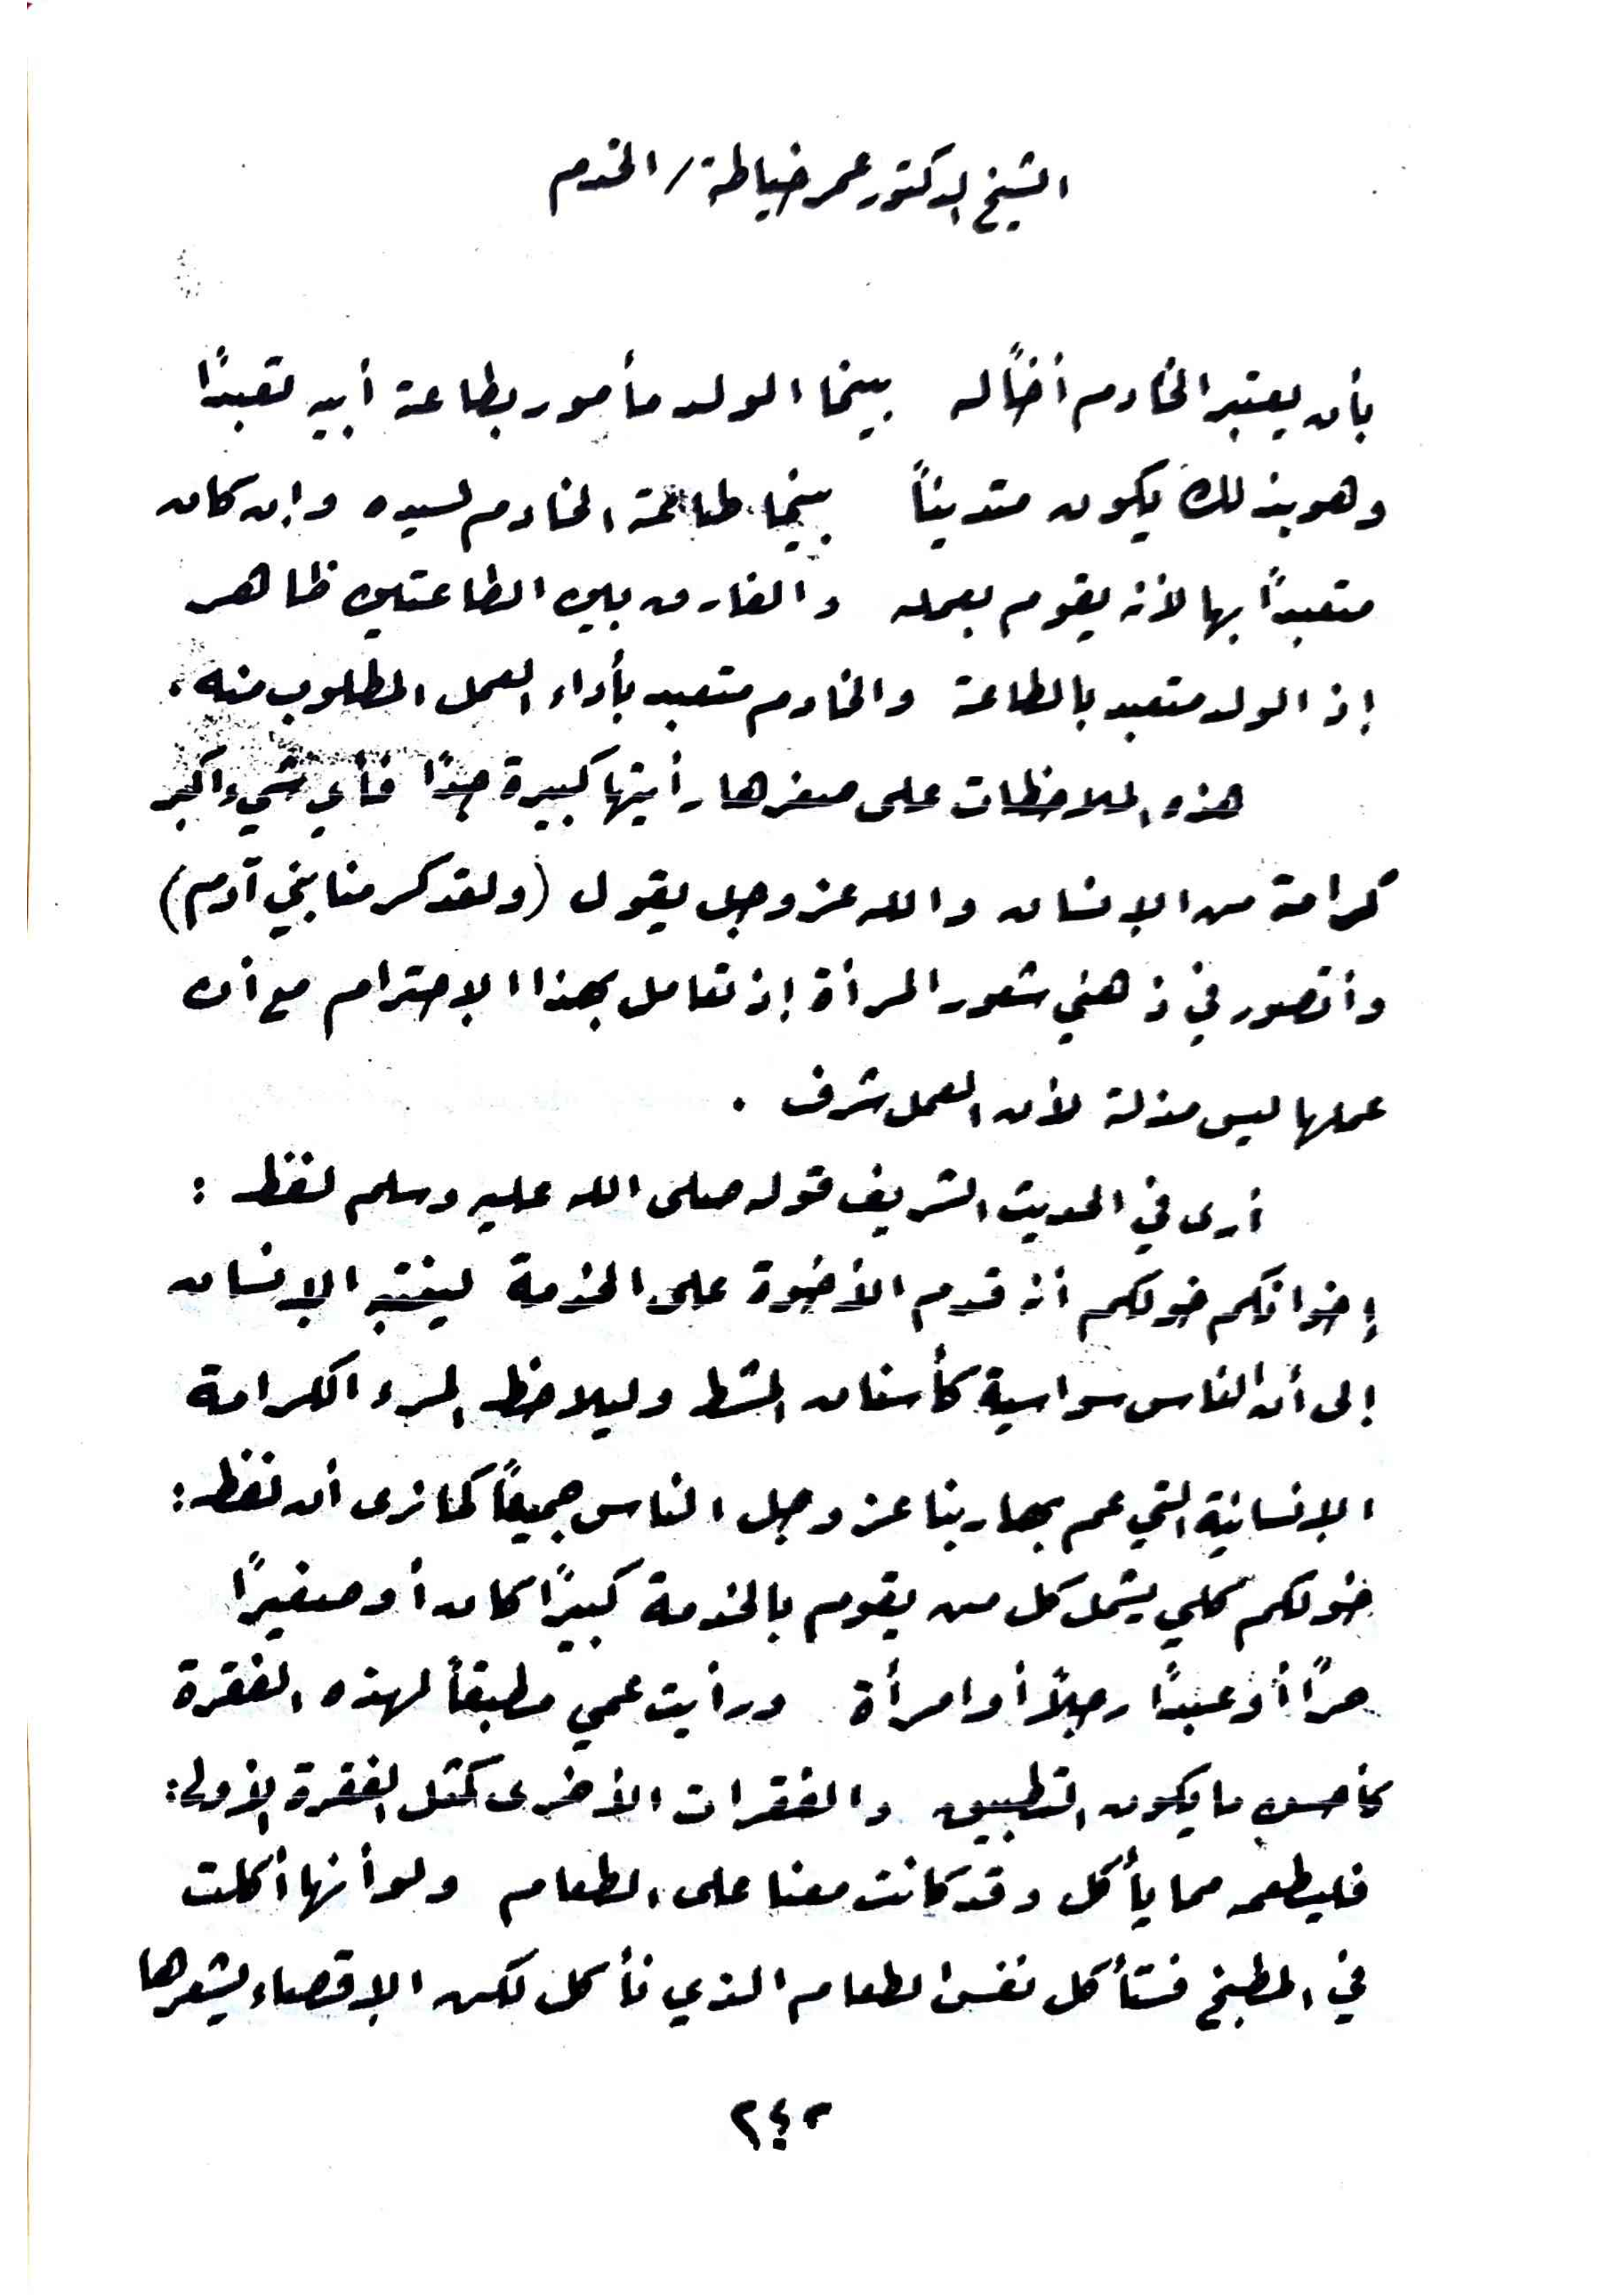 الشيخ الدكتور عمر خياطة / الخدم
بأن يعتبر الخادم أخاً له بينما الولد مأمور بطاعة أبيه تعبداً
وهو بذلك يكون متديناً بينما طاعة الخادم لسيده وإن كان
متعبداً بها لأنه يقوم بعمله والفارق بين الطاعتين ظاهر
إذ الولد متعبد بالطاعة والخادم متعبد بأداء العمل المطلوب منه.
هذه الملاحظات على صغرها رأيتها كبيرة جداً فأي شيء أكبر
كرامة من الإنسان والله عز وجل يقول (ولقد كرمنا بني آدم)
وأتصور في ذهني شعور المرأة إذ تعامل بهذا الاحترام مع أن
عملها ليس مذلة لأن العمل شرف .
أرى في الحديث الشريف قوله صلى الله عليه وسلم لفظ :
إخوانكم خولكم أنه قدم الأخوة على الخدمة لينتبه الإنسان
إلى أن الناس سواسية كأسنان المشط وليلاحظ المرء الكرامة
الإنسانية التي عم بها ربنا عز وجل الناس جميعاً كما نرى أن لفظ :
خولكم كلي يشمل كل من يقوم بالخدمة كبيراً كان أو صغيراً
حراً أو عبداً رجلاً أو امرأة ورأيت عمي مطبقاً لهذه الفقرة
كأحسن ما يكون التطبيق والفقرات الأخرى كمثل الفقرة الأولى :
فليطعمه مما يأكل وقد كانت معنا على الطعام ولو أنها أكلت
في المطبخ فستأكل نفس الطعام الذي نأكل لكن الإقصاء يشعرها
٢٤٢